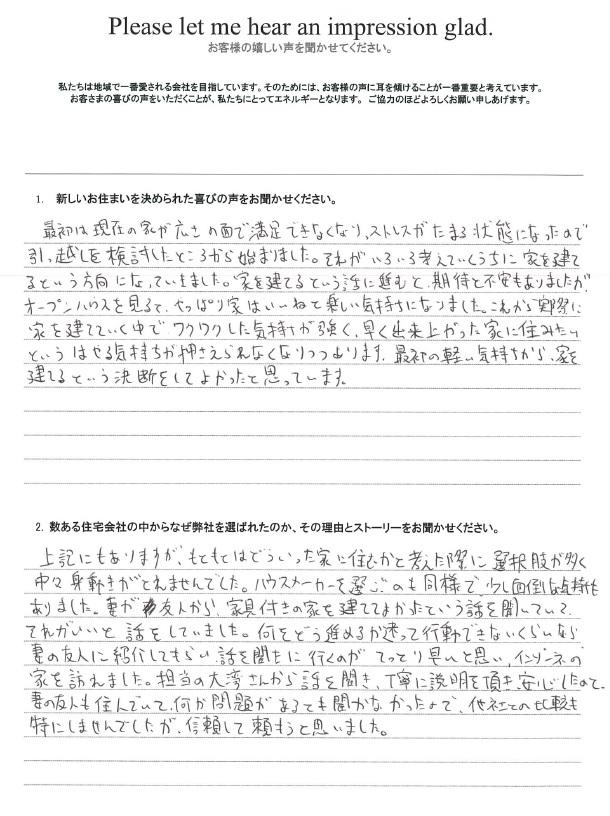 Please let me hear an impression glad.
お客様の嬉しい声を聞かせてください。
私たちは地域で一番愛される会社を目指しています。そのためには、お客様の声に耳を傾けることが一番重要と考えています。
お客さまの喜びの声をいただくことが、私たちにとってエネルギーとなります。 ご協力のほどよろしくお願い申しあげます。
1. 新しいお住まいを決められた喜びの声をお聞かせください。
最初は現在の家が広さの面で満足できなくなり、ストレスがたまる状態になったので
引っ越しを検討したところから始まりました。それがいろいろ考えていくうちに家を建て
るという方向になっていきました。家を建てるという話に進むと、期待と不安もありましたが、
オープンハウスを見ると、やっぱり家はいいねと楽しい気持ちになりました。これから実際に
家を建てていく中で、ワクワクした気持ちが強く、早く出来上がった家に住みたい
というはやる気持ちが押さえられなくなりつつあります。最初の軽い気持ちから、家を
建てるという決断をしてよかったと思っています。
2. 数ある住宅会社の中からなぜ弊社を選ばれたのか、その理由とストーリーをお聞かせください。
上記にもありますが、もともとはどういった家に住むかと考えた際に選択肢が多く
中々身動きがとれませんでした。ハウスメーカーを選ぶのも同様で、少し面倒な点も
ありました。妻が友人から、家具付きの家を建ててよかったという話を聞いていて、
それがいいと話をしていました。何をどう進めるか迷って行動できないくらいなら
妻の友人に紹介してもらい話を聞きに行くのがてっとり早いと思い、インゾーネの
家を訪れました。担当の大湾さんから話を聞き、丁寧に説明を頂き、安心したので、
妻の友人も住んでいて、何か問題があるとも聞かなかったので、他社との比較も
特にしませんでしたが、信頼して頼もうと思いました。